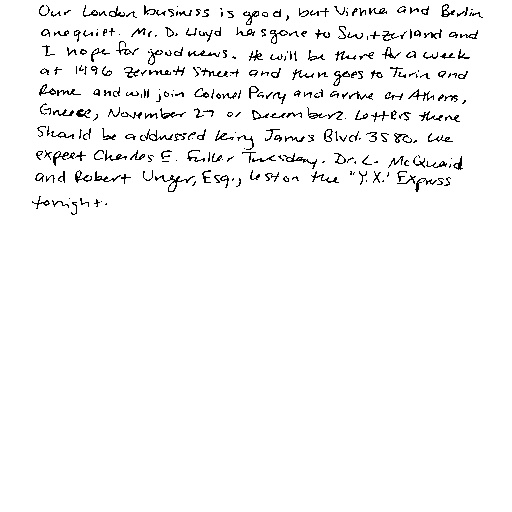 Our London business is good, but Vienna and Berlin
are quiet. Mr. D. Lloyd has gone to Switzerland and
I hope for good news. He will be there for a week
at 1496 Zermott Street and then goes to Turin and
Rome and will join Colonel Parry and arrive at Athens,
Greece, November 27 or December 2. Letters there
should be addressed King James Blvd. 3580. We
expect Charles E. Fuller Tuesday. Dr. L. McQuaid
and Robert Unger, Esq., left on the "Y.X." Express
tonight.